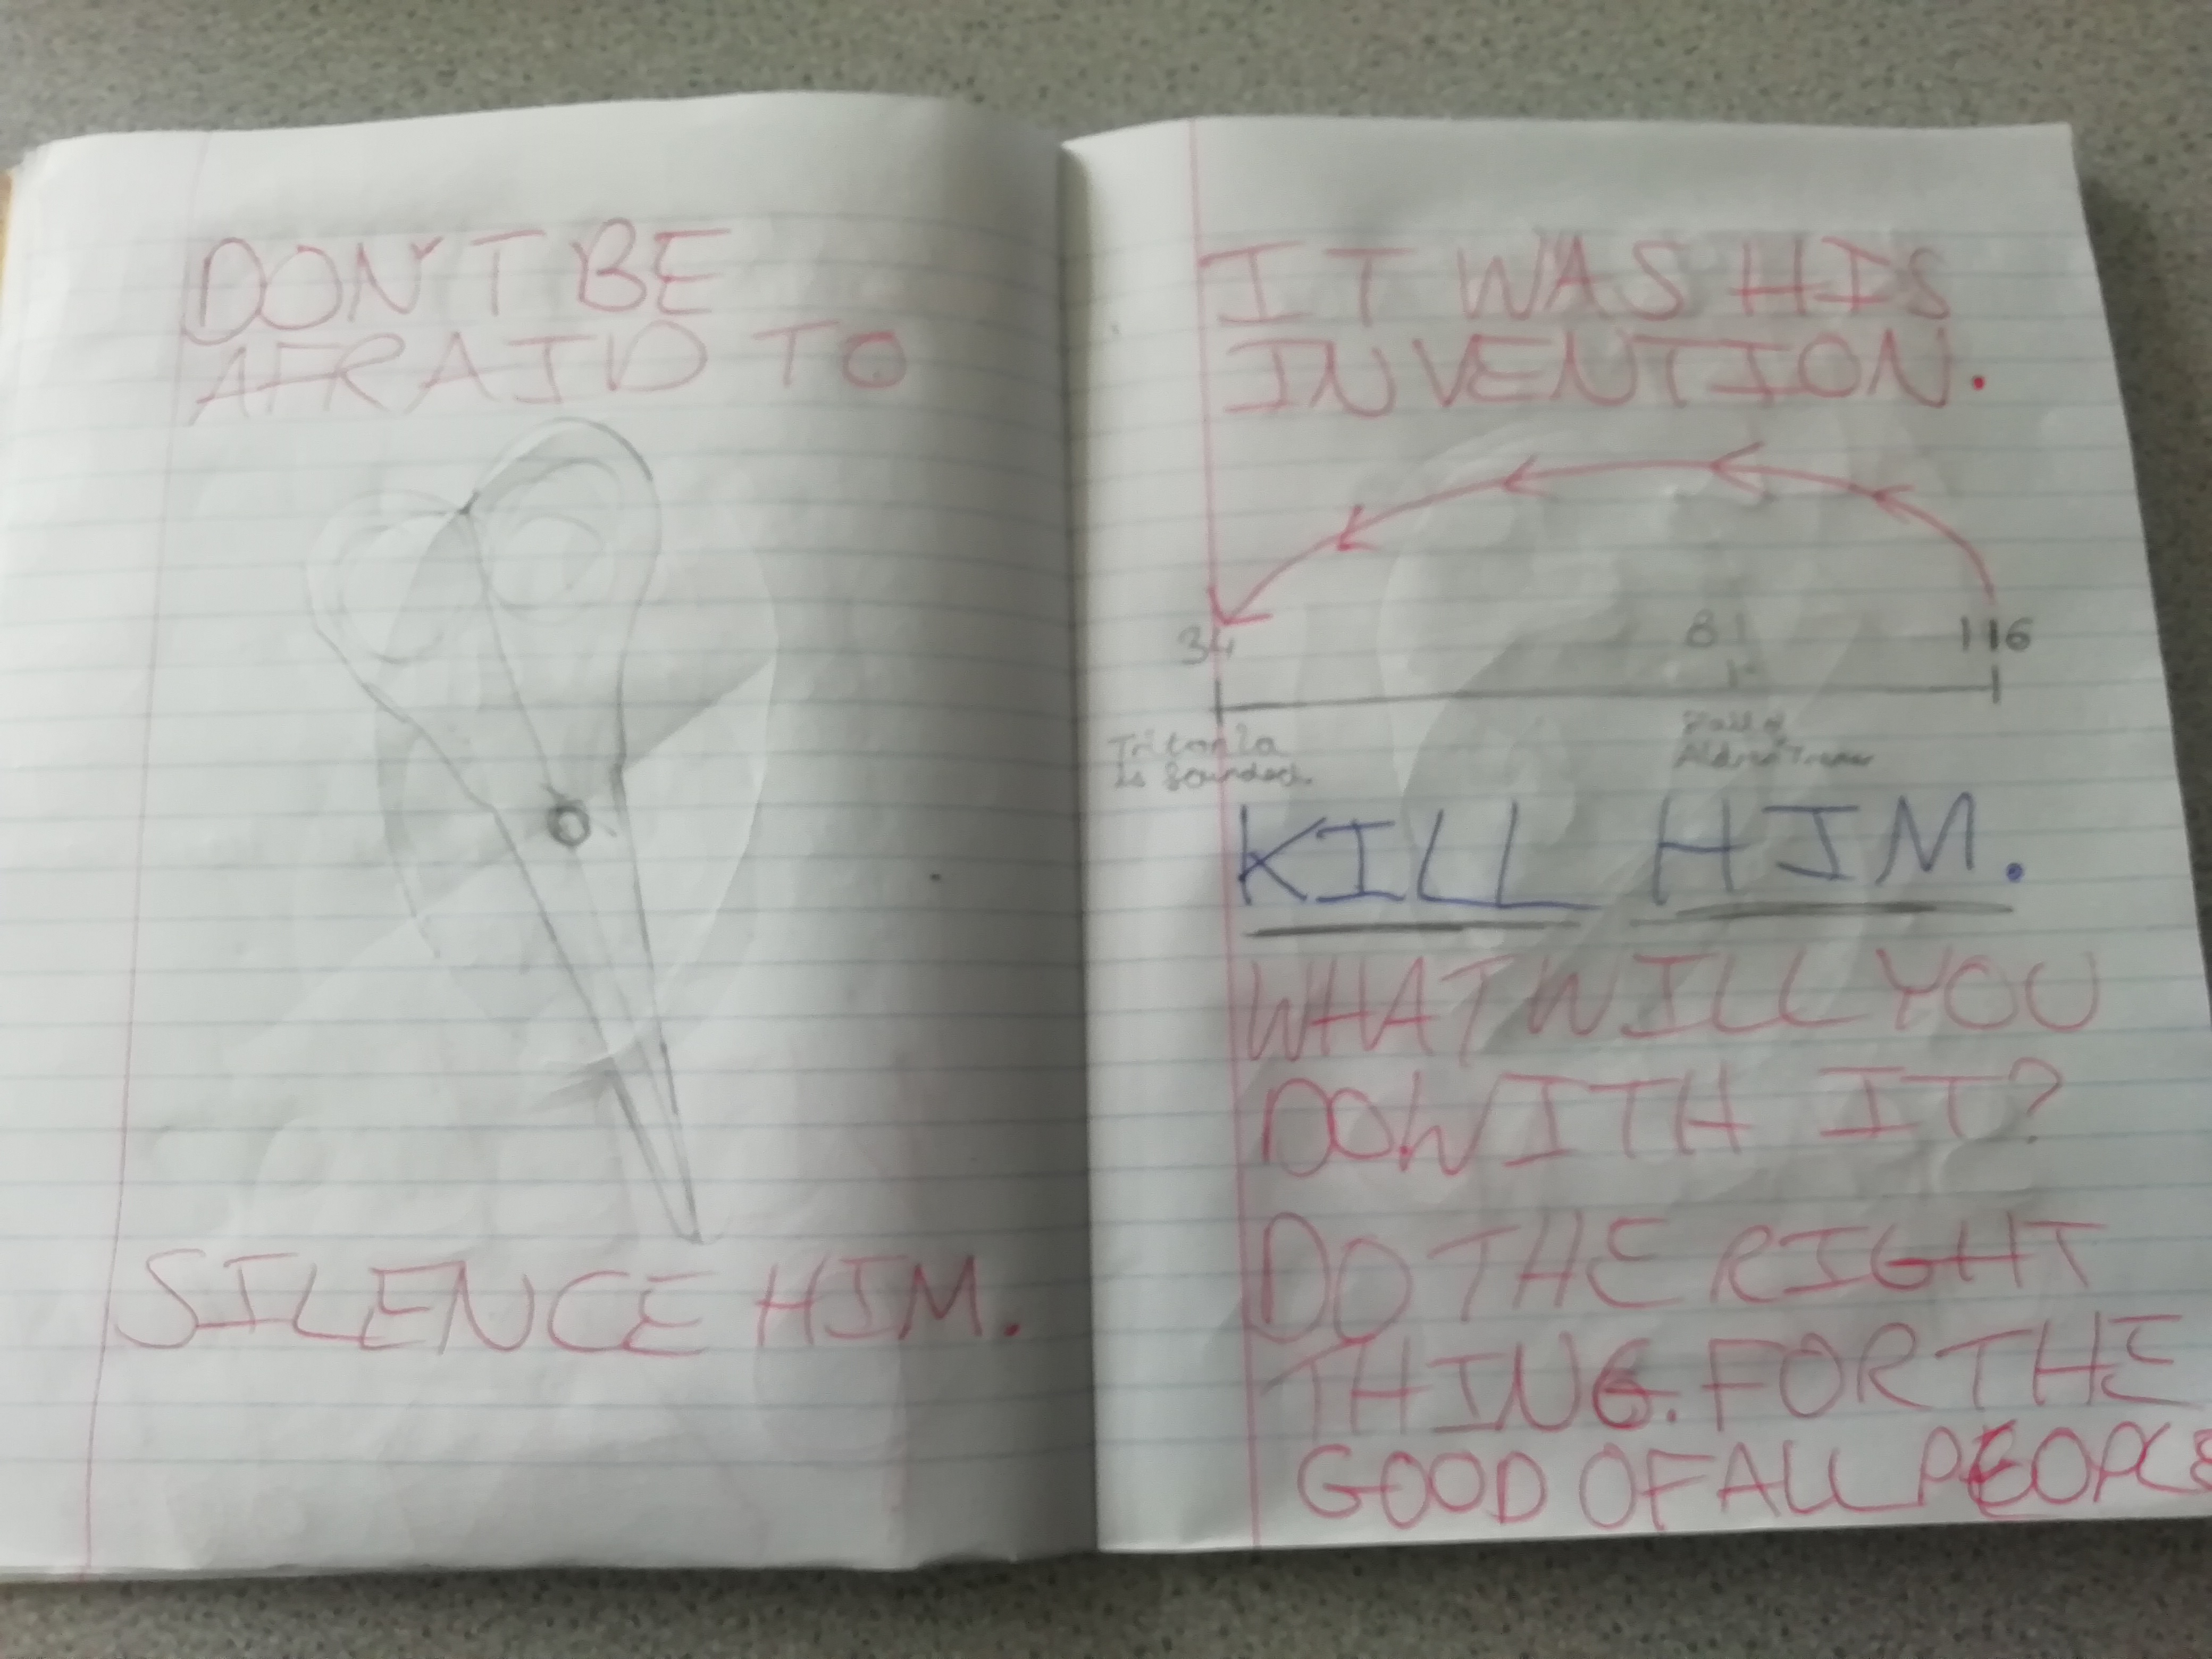 DON'T BE
AFRAID TO
SILENCE HIM.
IT WAS HIS
INVENTION.
34 81 116
Tritonia
is founded.
Fall of
KILL HIM.
WHAT WILL YOU
DO WITH IT?
DO THE RIGHT
THING. FOR THE
GOOD OF ALL PEOPLE